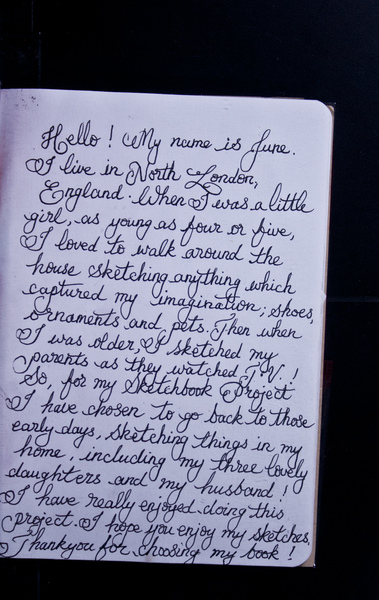 Hello! My name is June.
I live in North London,
England. When I was a little
girl, as young as four or five,
I loved to walk around the
house sketching anything which
captured my imagination; shoes,
ornaments and pets. Then when
I was older, I sketched my
parents as they watched T.V.!
So, for my Sketchbook Project
I have chosen to go back to those
early days, sketching things in my
home, including my three lovely
daughters and my husband!
I have really enjoyed doing this
project. I hope you enjoy my sketches.
Thankyou for choosing my book!